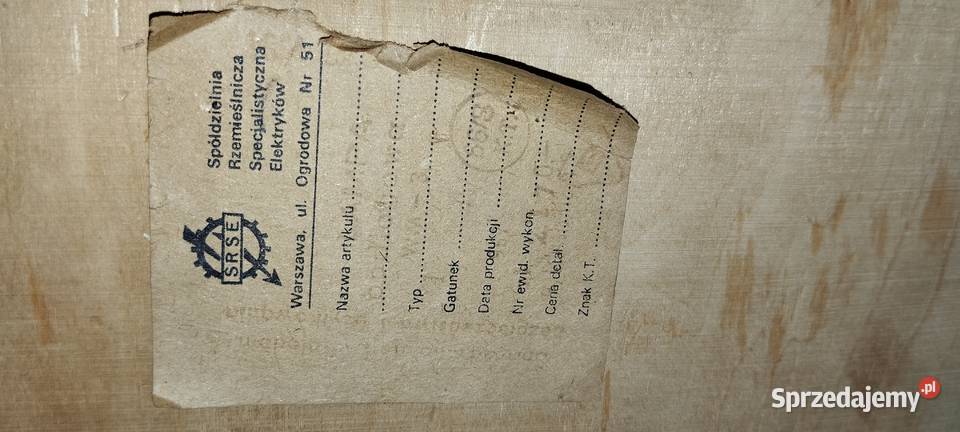 SRSE
Spółdzielnia
Rzemieślnicza
Specjalistyczna
Elektryków
Warszawa, ul. Ogrodowa Nr 51
Nazwa artykułu
Typ
Gatunek
Data produkcji
Nr ewid. wykon.
Cena detal.
Znak K.T.
Sprzedajemy.pl